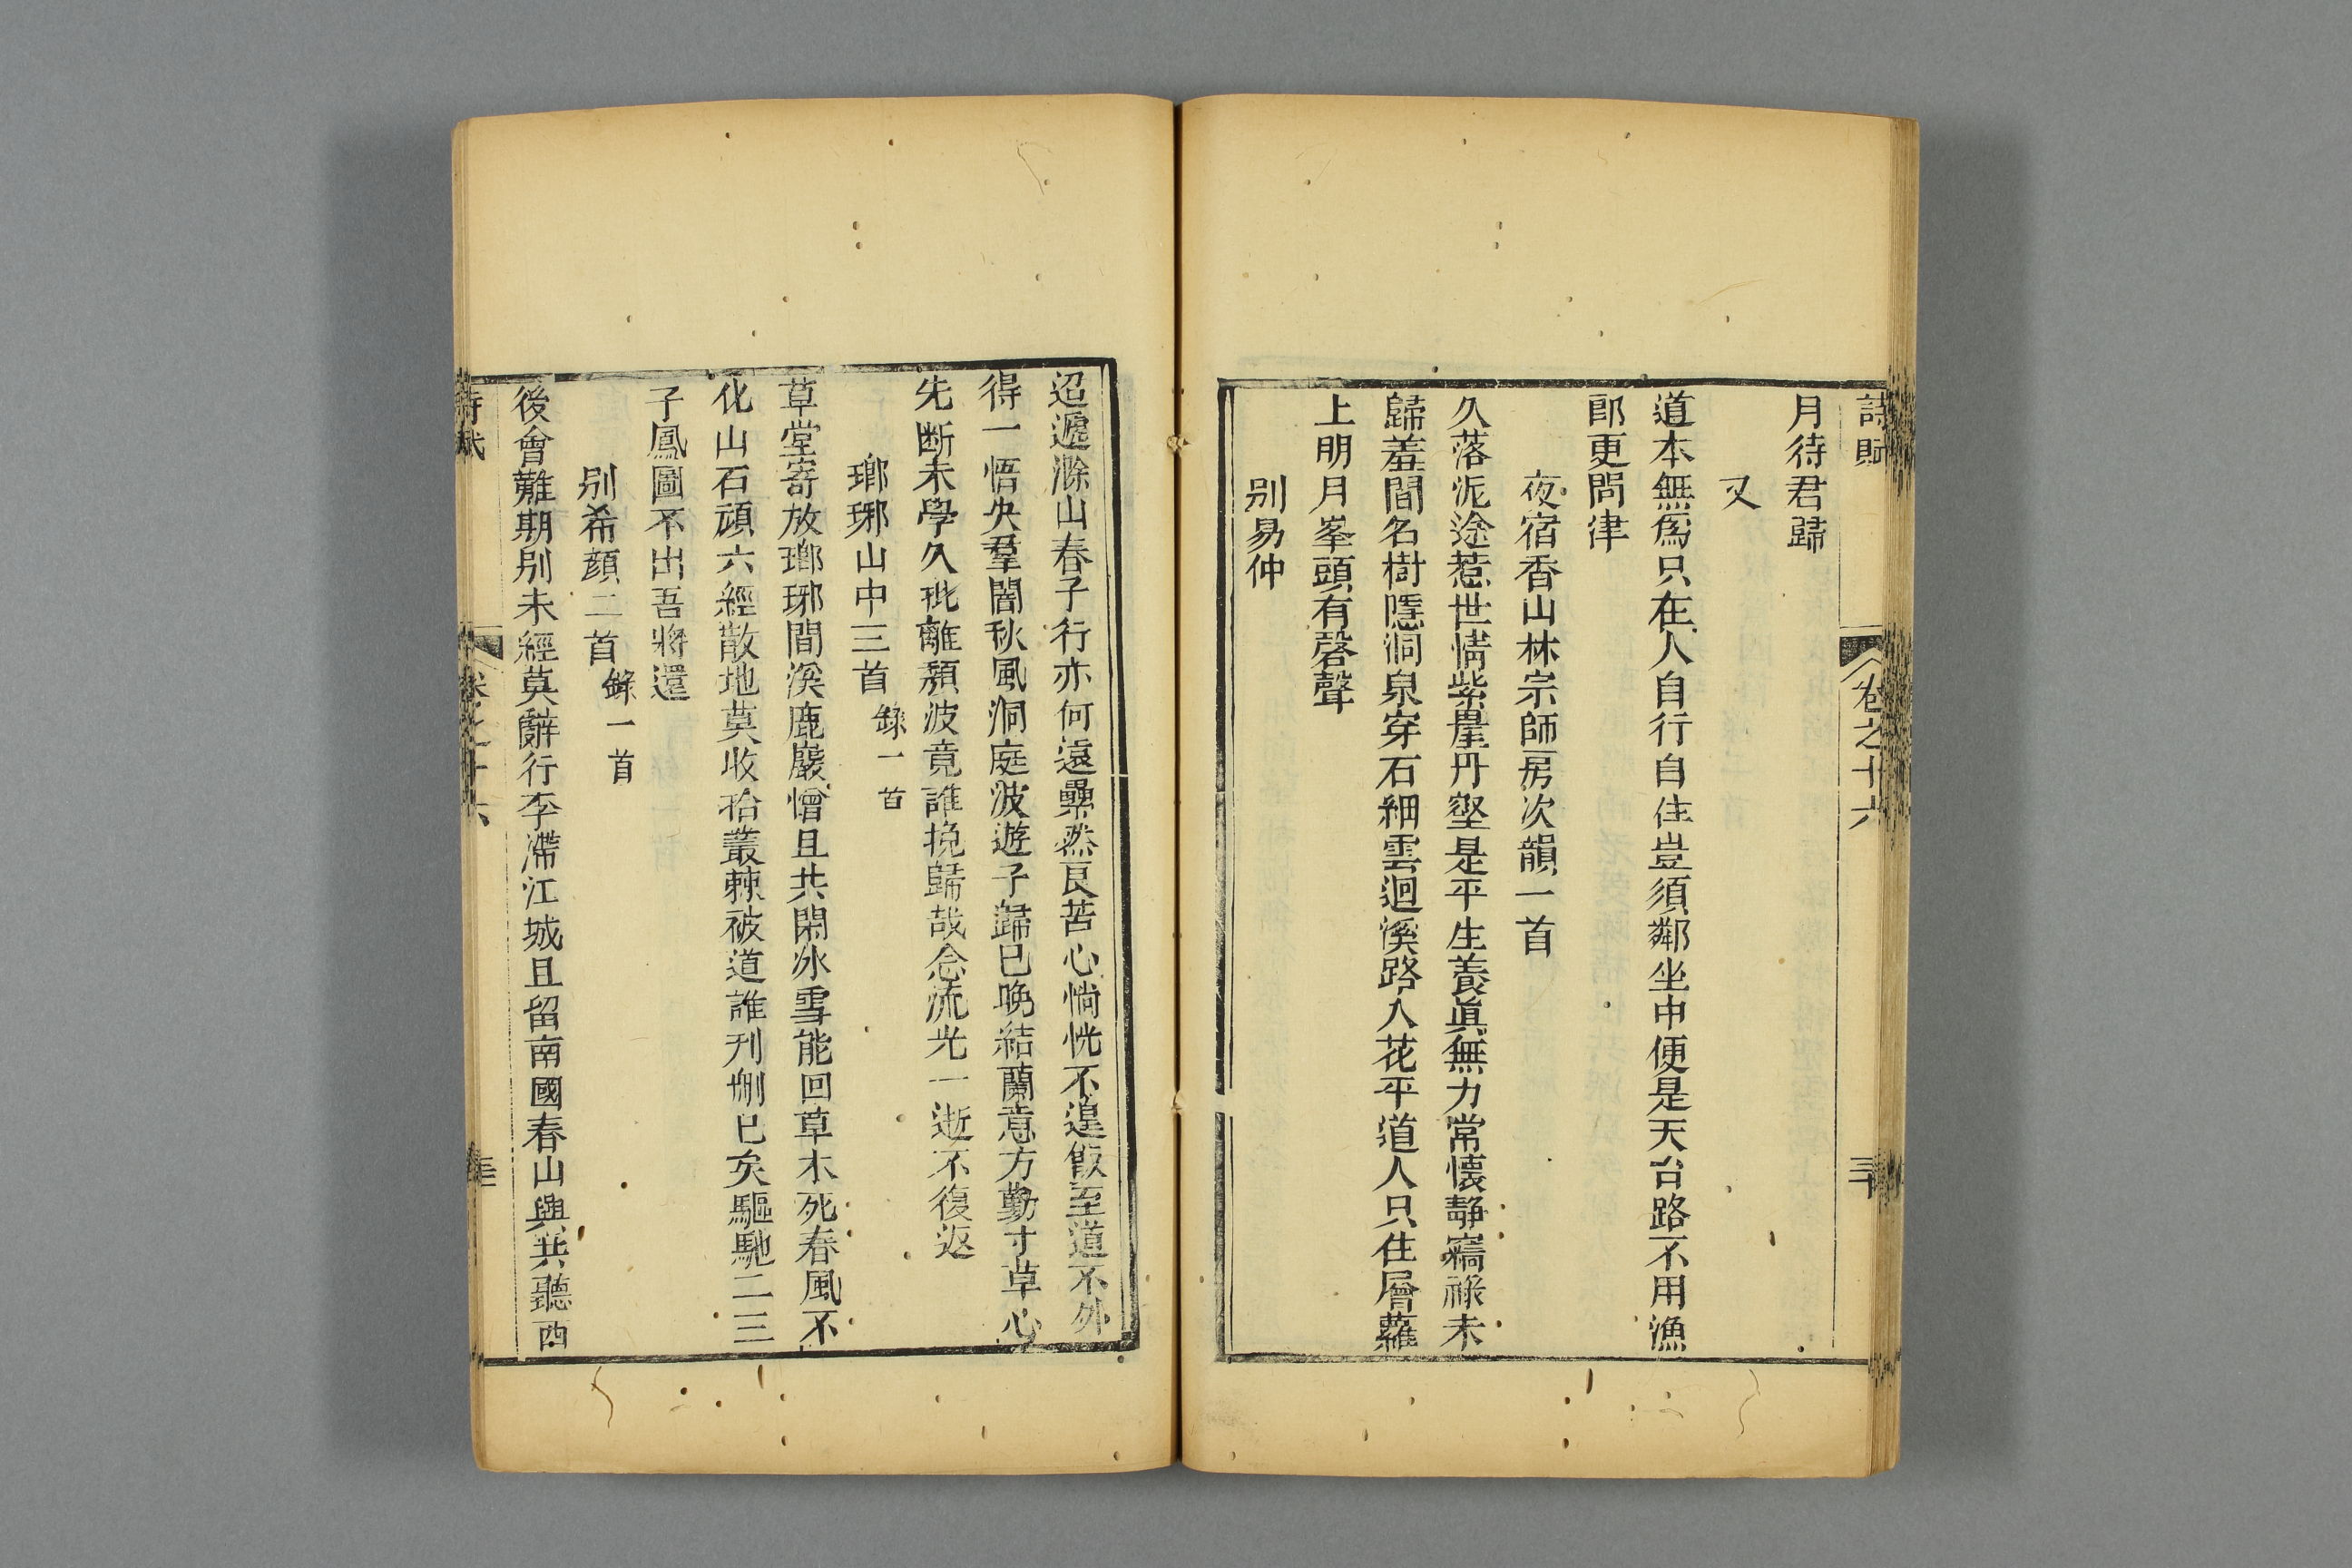 詩賦 卷之十六 三十
月待君歸
又
道本無爲只在人自行自住豈須鄰坐中便是天台路不用漁
郎更問津
夜宿香山林宗師房次韻一首
久落泥途惹世情紫崖丹壑是平生養眞無力常懷靜竊祿未
歸羞問名樹隱洞泉穿石細雲迴溪路入花平道人只住層蘿
上明月峯頭有磬聲
別易仲
迢遞滁山春子行亦何遠纍然良苦心惝恍不遑飯至道不外
得一悟失羣闇秋風洞庭波遊子歸已晚結蘭意方勤寸草心
先斷未學久仳離頹波竟誰挽歸哉念流光一逝不復返
瑯琊山中三首錄一首
草堂寄放瑯琊間溪鹿巖僧且共閑冰雪能回草木死春風不
化山石頑六經散地莫收拾叢棘被道誰刊刪已矣驅馳二三
子鳳圖不出吾將還
別希顔二首錄一首
後會難期別未經莫辭行李滯江城且留南國春山興共聽西